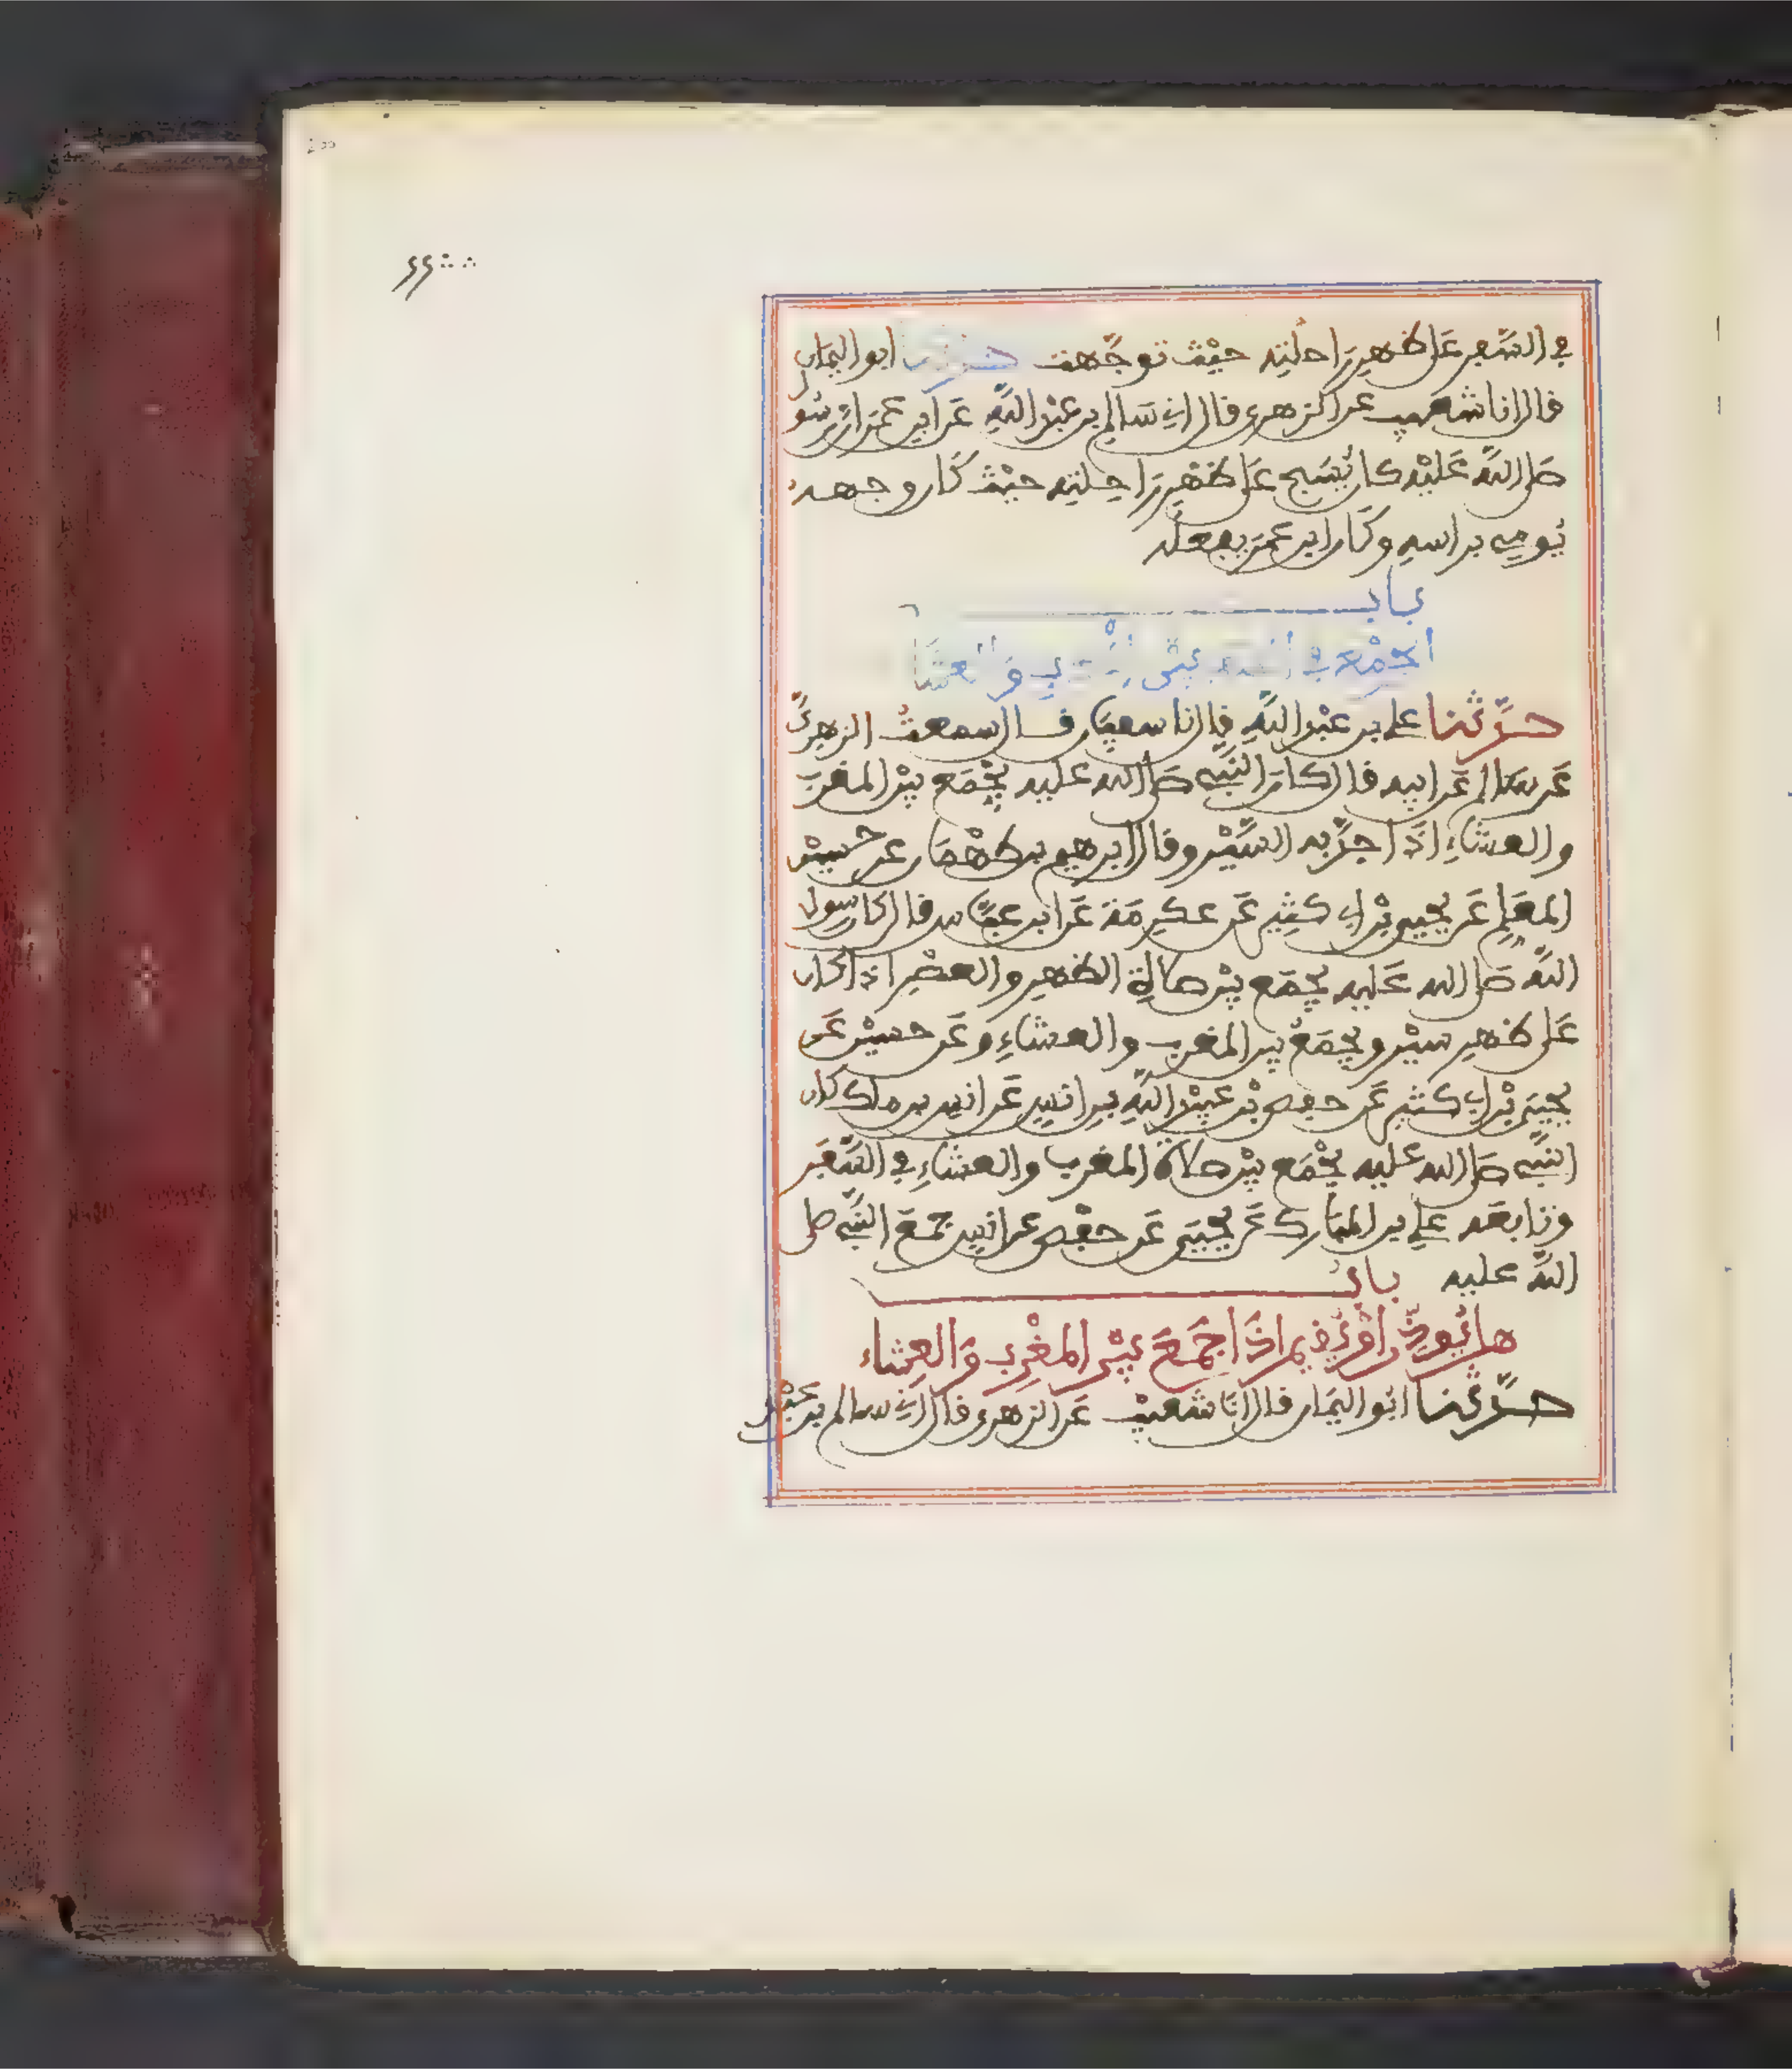 في السَّفر على ظهر راحلته حيث توجَّهت حدثنا ابو اليمان
قال انا شعيب عن الزهري قال اني سالم بن عبد الله عن ابن عمر ان رسول
صلى الله عليه كان يسبح على ظهر راحلته حيث كان وجهه
يومي براسه وكان ابن عمر يفعله
باب
الجمع في السفر بين المغرب والعشا
حدَّثنا علي بن عبد الله قال نا سفيان قال سمعت الزهريَّ
عن سالم عن ابيه قال كان النبي صلى الله عليه يجمع بين المغرب
والعشاءِ اذا جدَّ به السَّير وقال ابرهيم بن طهمان عن حسين
المعلم عن يحيى بن ابي كثير عن عكرمة عن ابن عباس قال كان رسول
الله صلى الله عليه يجمع بين صلاة الظهر والعصر اذا كان
على ظهر سير ويجمع بين المغرب والعشاءِ وعن حسين عن
يحيى بن ابي كثير عن حفص بن عبيد الله بن انس عن انس بن ملك كان
النبي صلى الله عليه يجمع بين صلاة المغرب والعشاءِ في السَّفر
وتابعه علي بن المبارك عن يحيى عن حفص عن انس جمع النبي صلى
الله عليه باب
هل يُوذن او يقيم اذا جمع بين المغرب والعشاء
حدَّثنا ابو اليمان قال انا شعيب عن الزهري قال اني سالم بن عبد